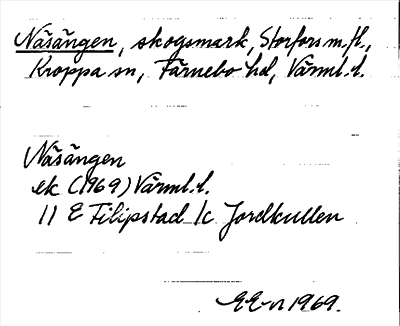 Näsängen, skogsmark, Storfors m.fl.,
Kroppa sn, Färnebo hd, Värml. l.
Näsängen
ek (1969) Värml. l.
11 E Filipstad 1c Jordkullen
EE-n 1969.